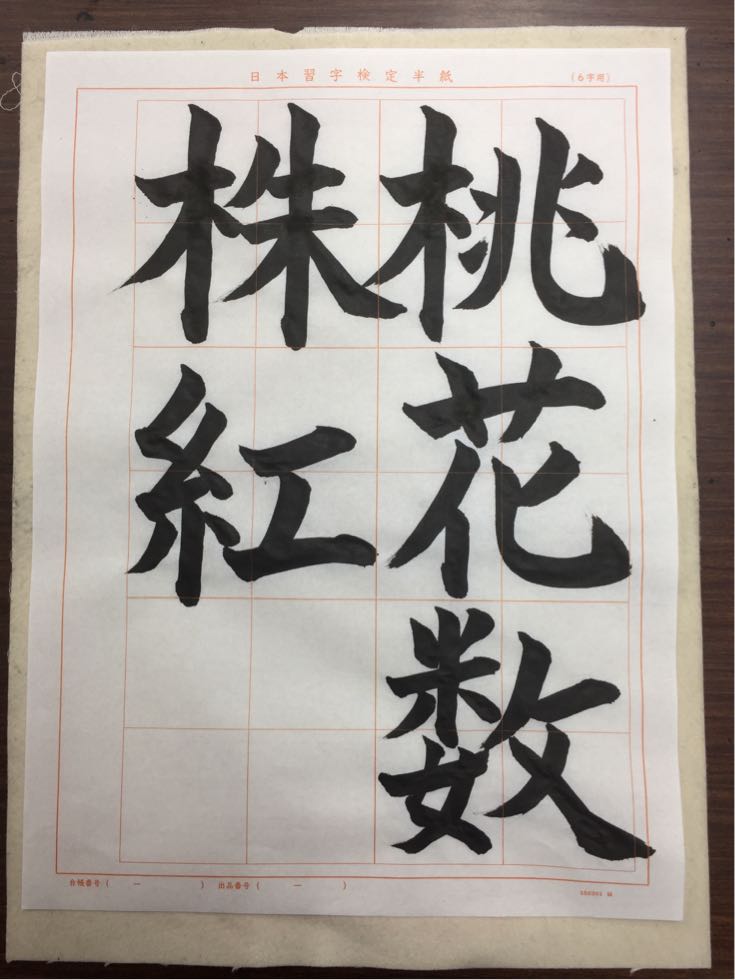 日本習字検定半紙
(6字用)
桃花数
株紅
台帳番号( ー ) 出品番号( ー )